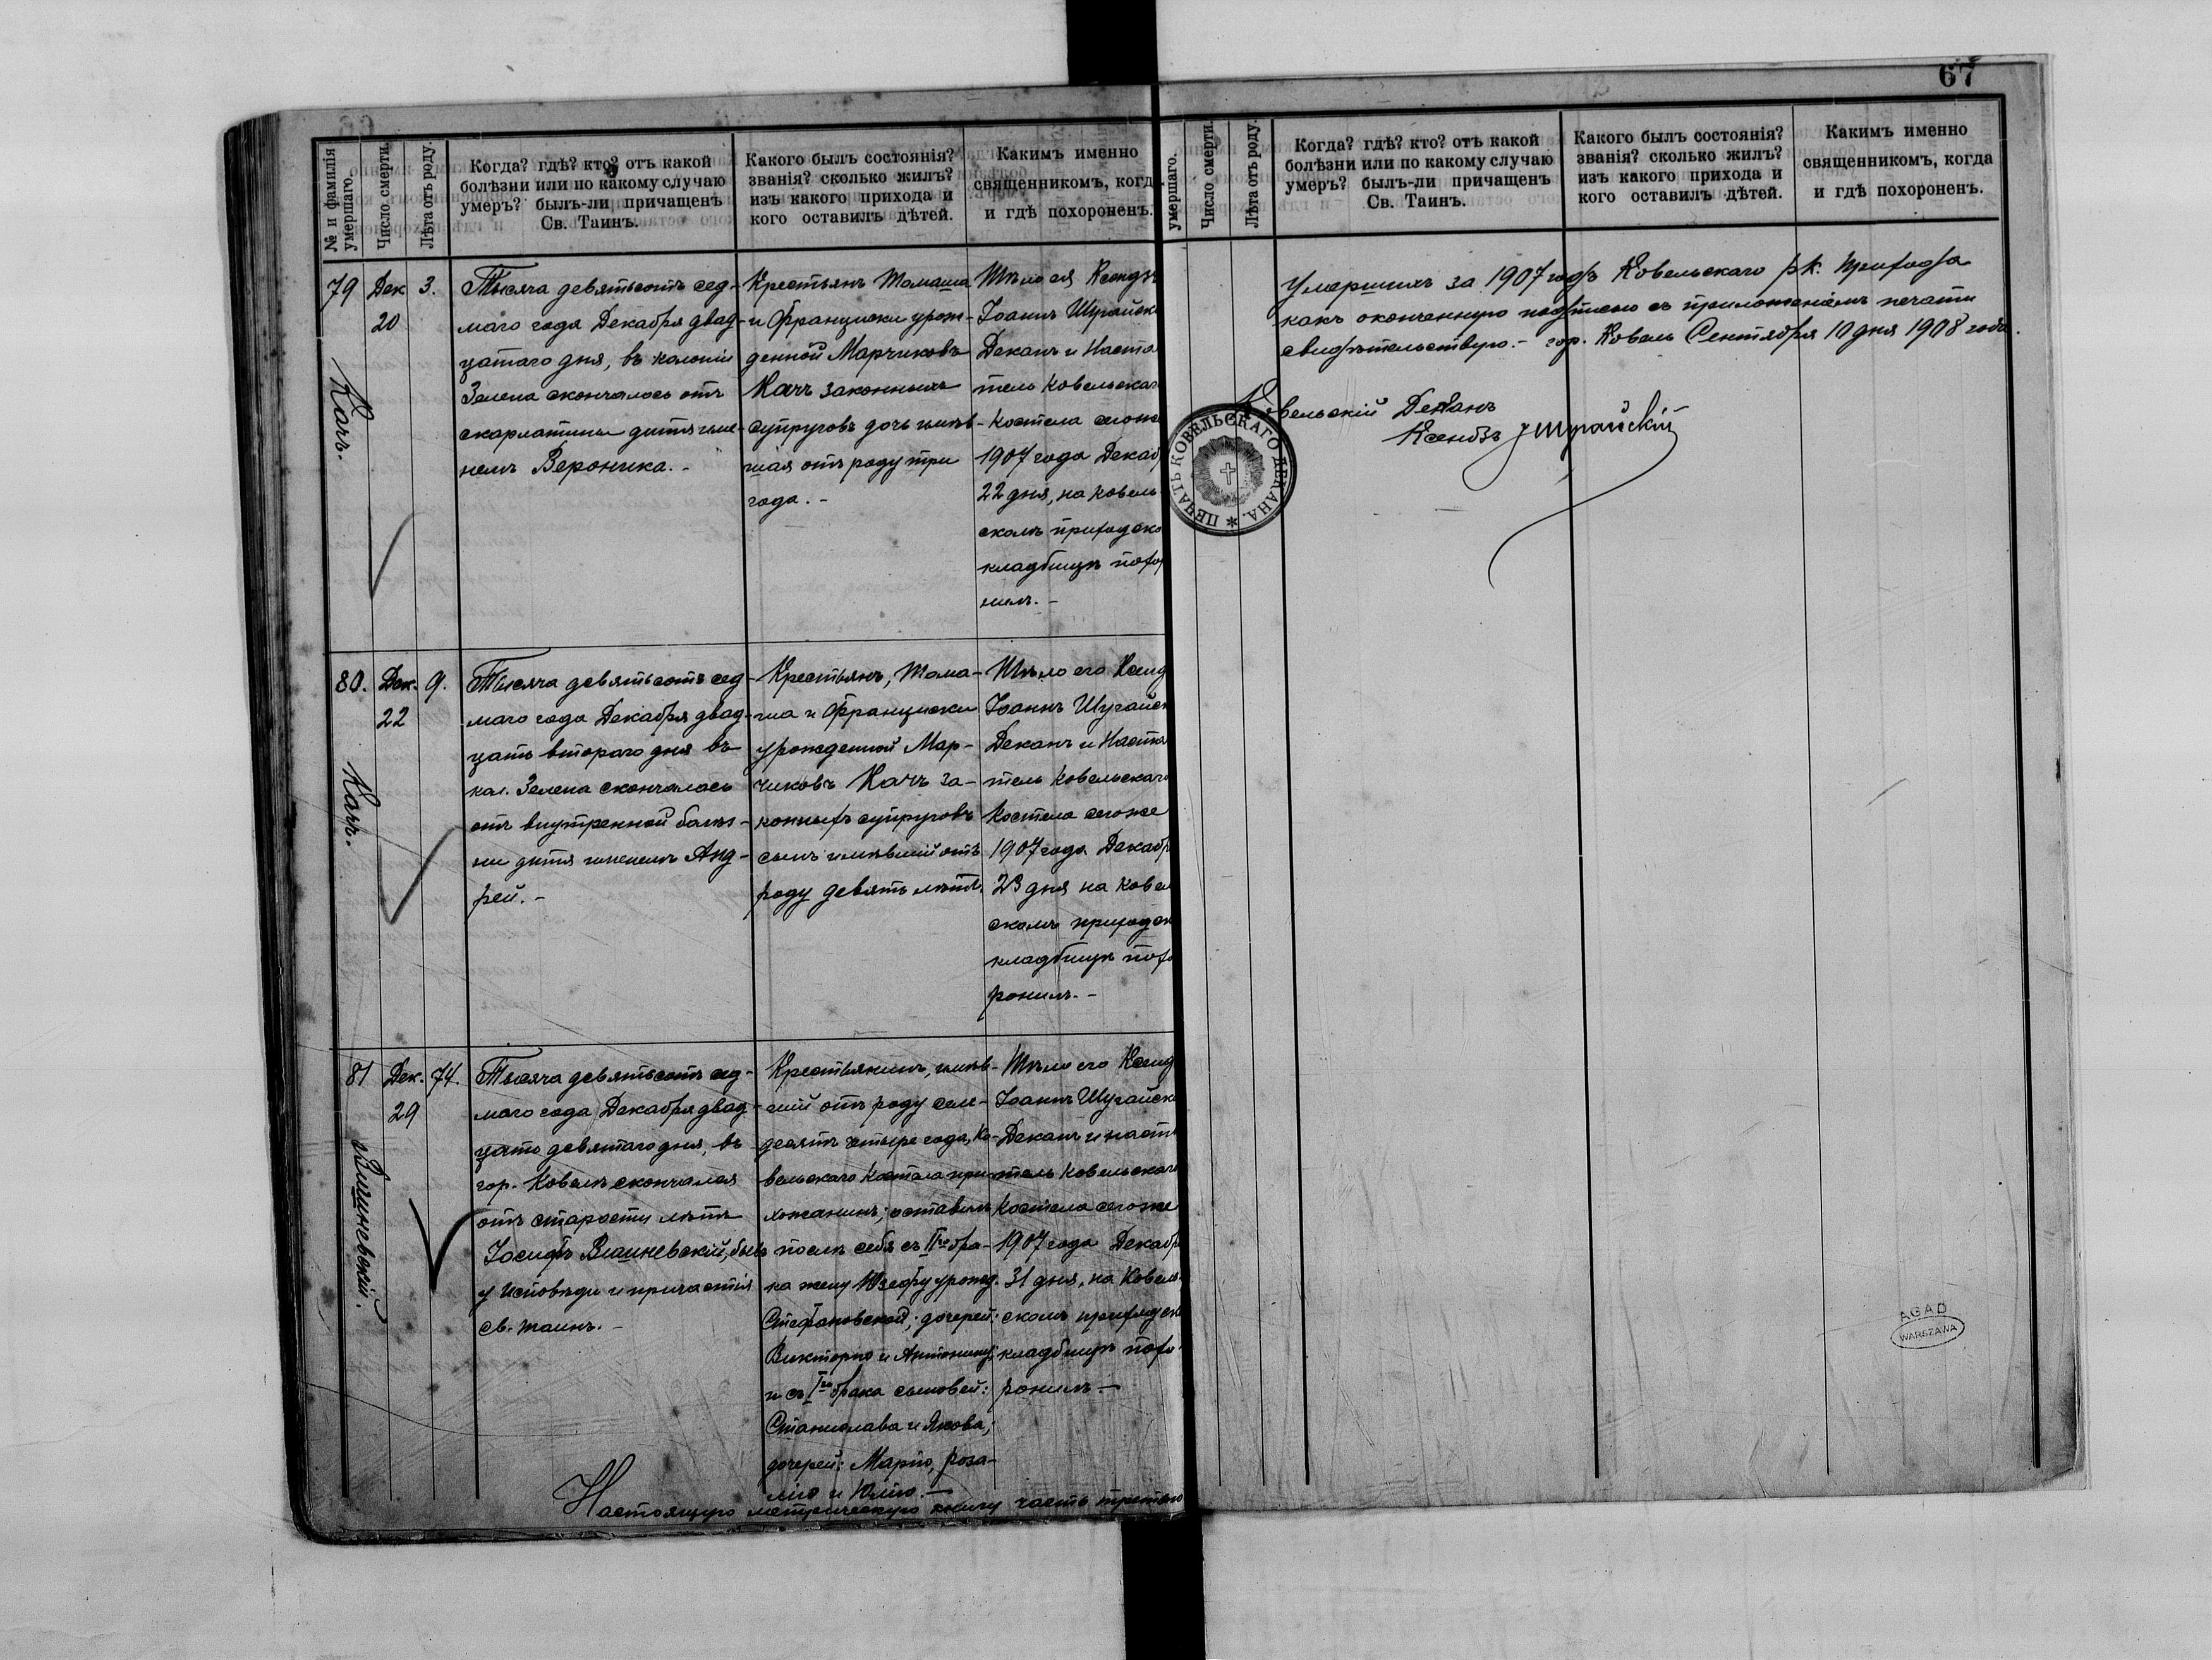 67
№ и фамилія умершаго.
Число смерти.
Лѣта отъ роду.
Когда? гдѣ? кто? отъ какой
болѣзни или по какому случаю
умеръ? былъ-ли причащенъ
Св. Таинъ.
Какого былъ состоянія?
званія? сколько жилъ?
изъ какого прихода и
кого оставилъ дѣтей.
Какимъ именно
священникомъ, когд
и гдѣ похороненъ.
79
Качъ.
Дек
20
3.
Тысяча девятьсотъ сед-
маго года Декабря двад-
цатаго дня, въ колоніи
Зелена скончалось отъ
скарлатины дитя име-
немъ Вероника. -
Крестьянъ Томаша
и Франциски урож-
денной Марчиковъ
Качъ законныхъ
супруговъ дочь имѣв-
шая отъ роду три
года. -
Тѣло ея Ксендзъ
Іоаннъ Шурайск
Деканъ и Настоя
тель Ковельскаг
Костела сегоже
1907 года Декаб
22 дня, на Ковель
скомъ приходско
кладбищѣ похор
нилъ. -
80.
Качъ.
Дек.
22
9.
Тысяча девятьсотъ сед-
маго года Декабря двад-
цать втораго дня въ
кол. Зелена скончалось
отъ внутренной болѣз-
ни дитя именемъ Анд-
рей. -
Крестьянъ, Тома-
ша и Франциски
урожденной Мар-
чиковъ Качъ за-
конныхъ супруговъ
сынъ имѣвшій отъ
роду девять лѣтъ.
Тѣло его Ксенд
Іоаннъ Шурайск
Деканъ и Настоя
тель Ковельскаго
Костела сегоже
1907 года Декабр
23 дня на Ковел
скомъ приходск
кладбищѣ похо
ронилъ. -
81
Вишневскій.
Дек.
29
74.
Тысяча девятьсотъ сед-
маго года Декабря двад-
цать девятаго дня, въ
гор. Ковелѣ скончался
отъ старости лѣтъ
Іосифъ Вишневскій, былъ
у Исповѣди и причастія
св. таинъ. -
Крестьянинъ, имѣв-
шій отъ роду семь-
десятъ четыре года, Ко-
вельскаго Костела при-
хожанинъ; оставилъ
послѣ себя съ IIго бра-
ка жену Юзефу урожд.
Стефановской; дочерей:
Викторію и Антонину,
и съ Iго брака сыновей:
Станислава и Якова,
дочерей: Марію, Роза-
лію и Юлію. -
Тѣло его Ксенд
Іоаннъ Шурайск
Деканъ и насто
тель Ковельскаго
Костела сегоже
1907 года Декабр
31 дня, на Ковель-
скомъ приходск
кладбищѣ похо-
ронилъ. -
Настоящую метрическую книгу часть третью
умершаго.
Число смерти.
Лѣта отъ роду.
Когда? гдѣ? кто? отъ какой
болѣзни или по какому случаю
умеръ? былъ-ли причащенъ
Св. Таинъ.
Какого былъ состоянія?
званія? сколько жилъ?
изъ какого прихода и
кого оставилъ дѣтей.
Какимъ именно
священникомъ, когда
и гдѣ похороненъ.
умершихъ за 1907 годъ Ковельскаго р.к. прихода
какъ оконченную подписью съ приложеніемъ печати
свидѣтельствую. - гор. Ковель Сентября 10 дня 1908 года.
Ковельскій Деканъ
Ксендзъ Шурайскій
ПЕЧАТЬ КОВЕЛЬСКАГО ДЕКАНА.
AGAD
WARSZAWA